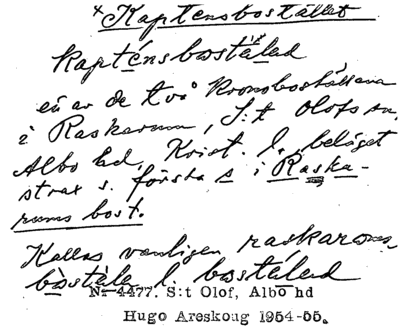 ×Kaptensbostället
kapténsbostä́led
en av de två kronoboställena
i Raskarum, S:t Olofs sn,
Albo hd, Krist. l., beläget
strax s. första s i Raska-
rums bost.
Kallas vanligen raskaroms-
bòstäle l. bostä́led
Nr 4477. S:t Olof, Albo hd
Hugo Areskoug 1954-55.